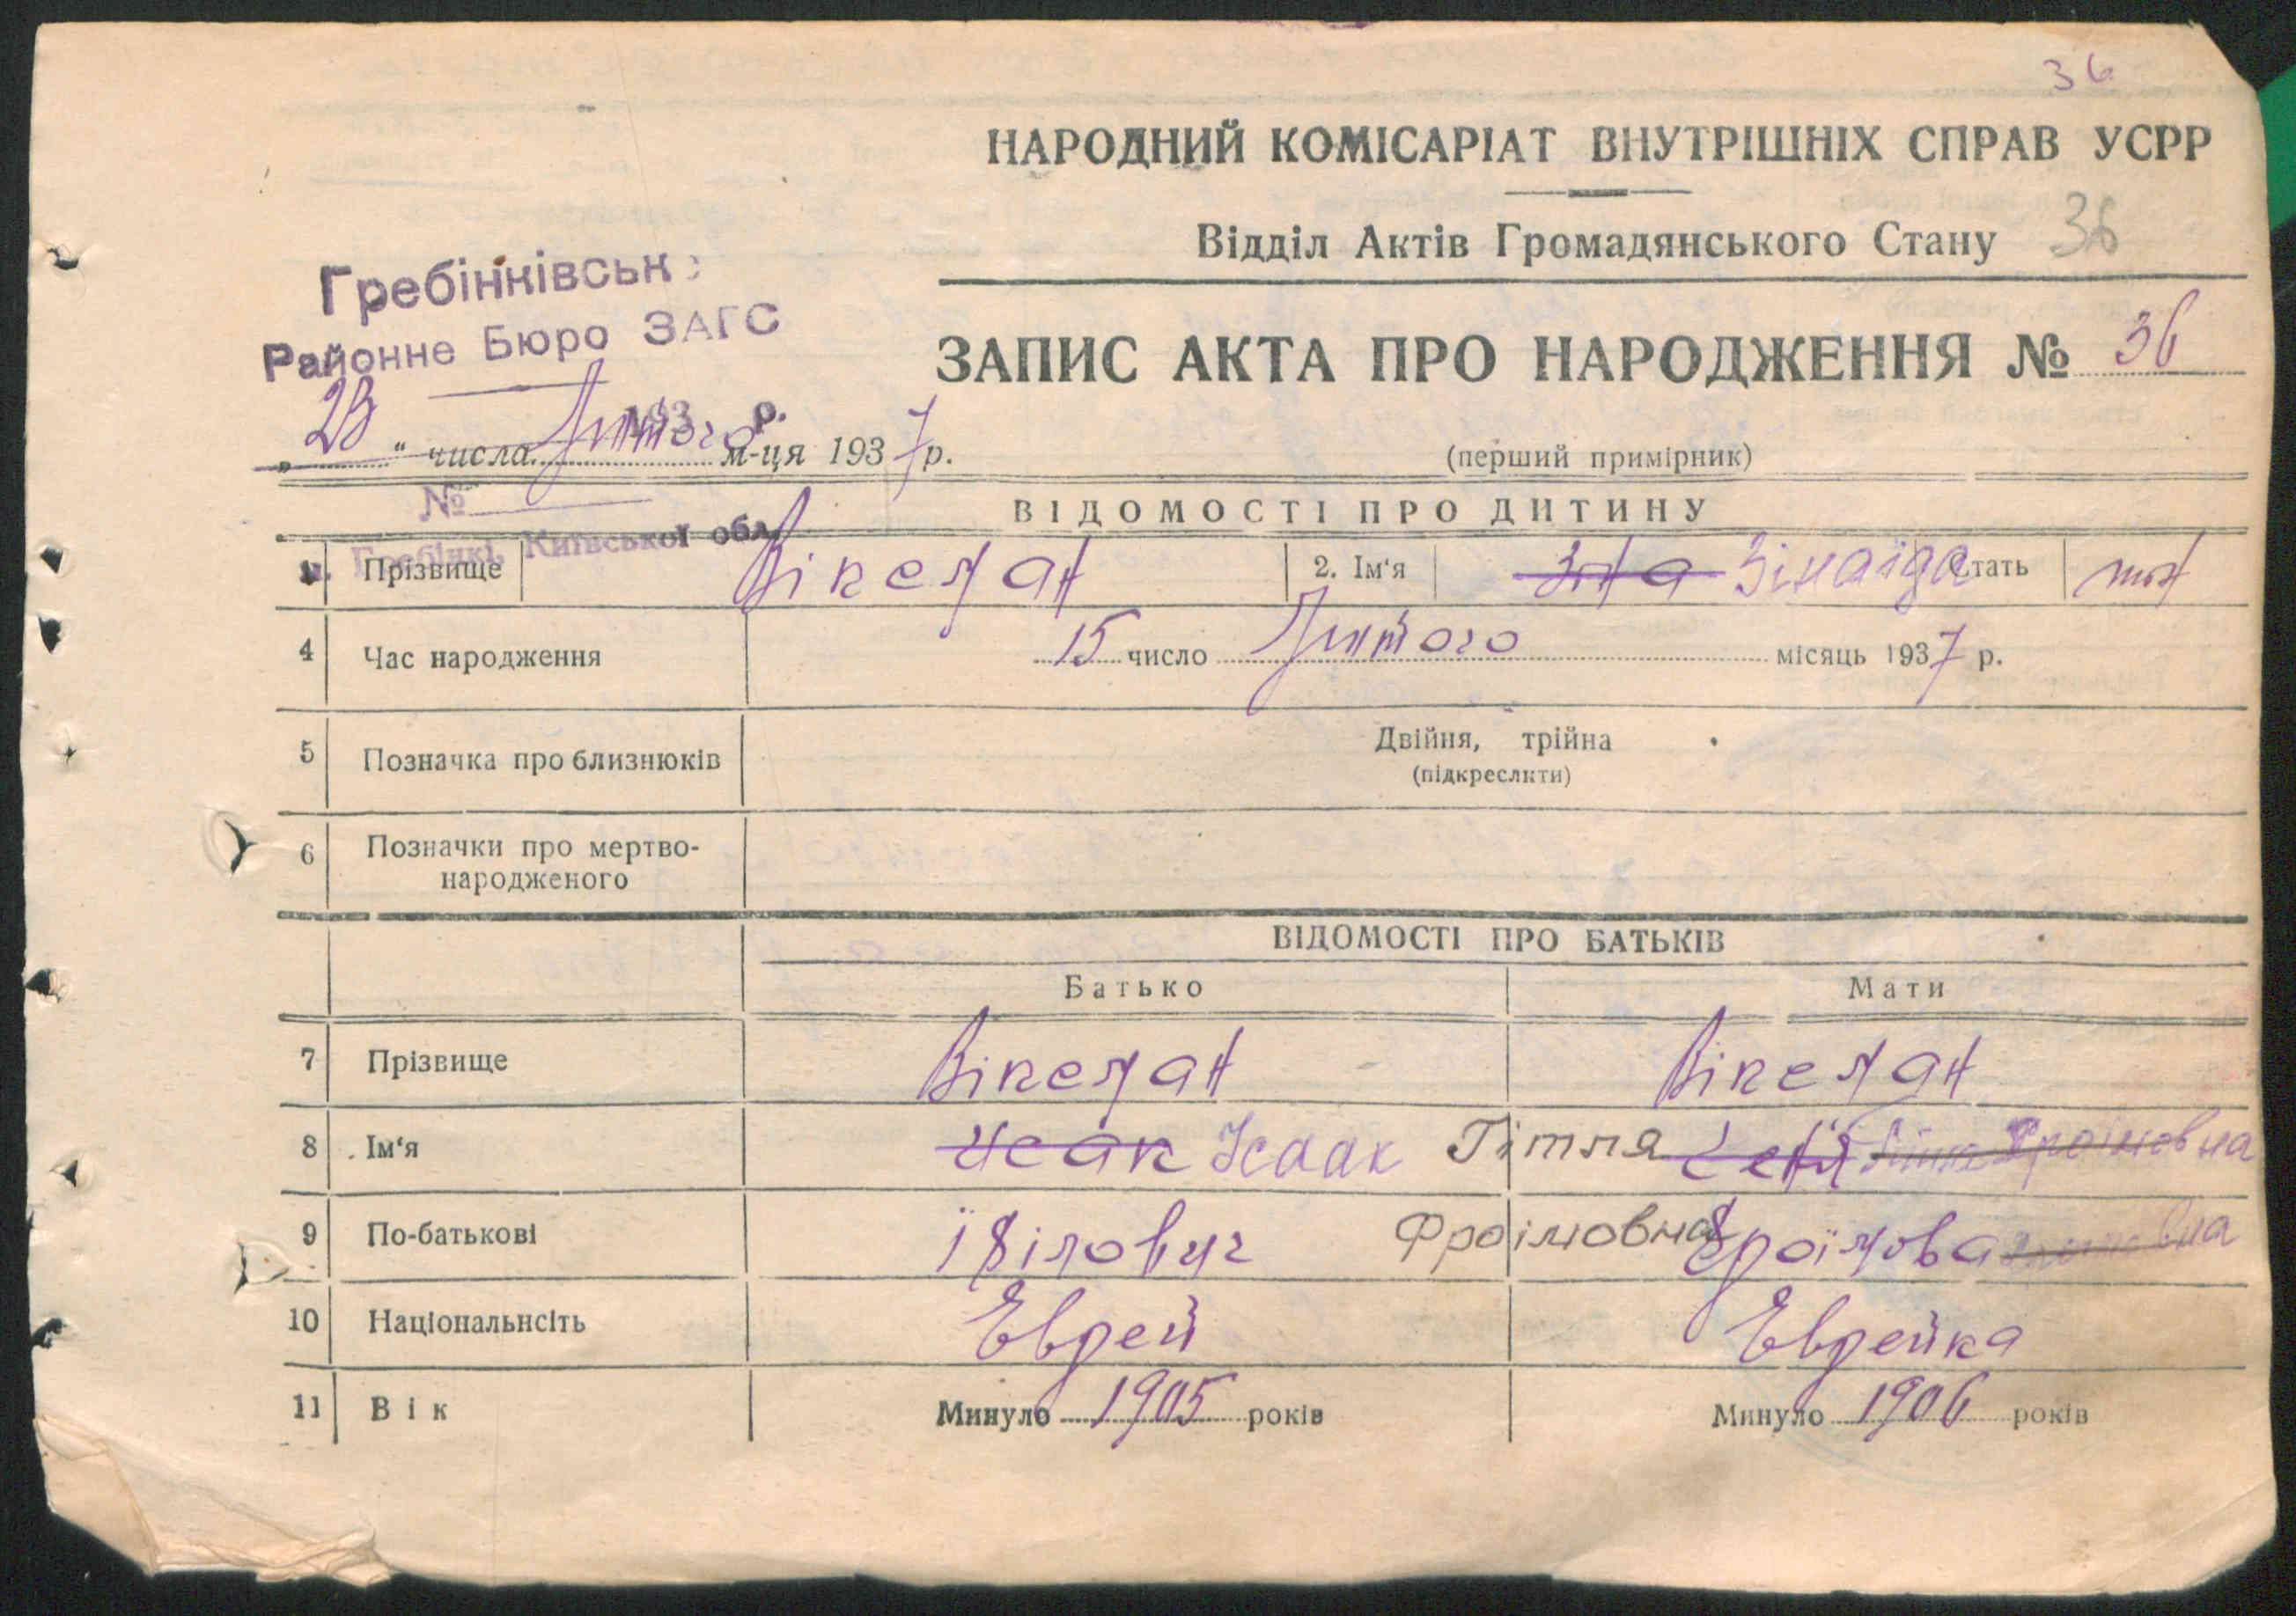 36
НАРОДНИЙ КОМІСАРІАТ ВНУТРІШНІХ СПРАВ УСРР
Відділ Актів Громадянського Стану 36
Гребінківськ
Районне Бюро ЗАГС
193 р.
ЗАПИС АКТА ПРО НАРОДЖЕННЯ № 36
„ 23 " числа Лютого м-ця 1937 р.
(перший примірник)
№
м. Гребінкі, Київської обл.
ВІДОМОСТІ ПРО ДИТИНУ
1 Прізвище Вікелан 2. Ім'я Зінаїда Стать жін
4 Час народження 15 число Лютого місяць 1937 р.
5 Позначка про близнюків Двійня, трійна
(підкреслити)
6 Позначки про мертво-
народженого
ВІДОМОСТІ ПРО БАТЬКІВ
Батько Мати
7 Прізвище Вікелан Вікелан
8 Ім'я Исак Ісаак Гітля Фроімовна
9 По-батькові Фроімовна Фроїмова
10 Національнсіть Еврей Еврейка
11 Вік Минуло 1905 років Минуло 1906 років